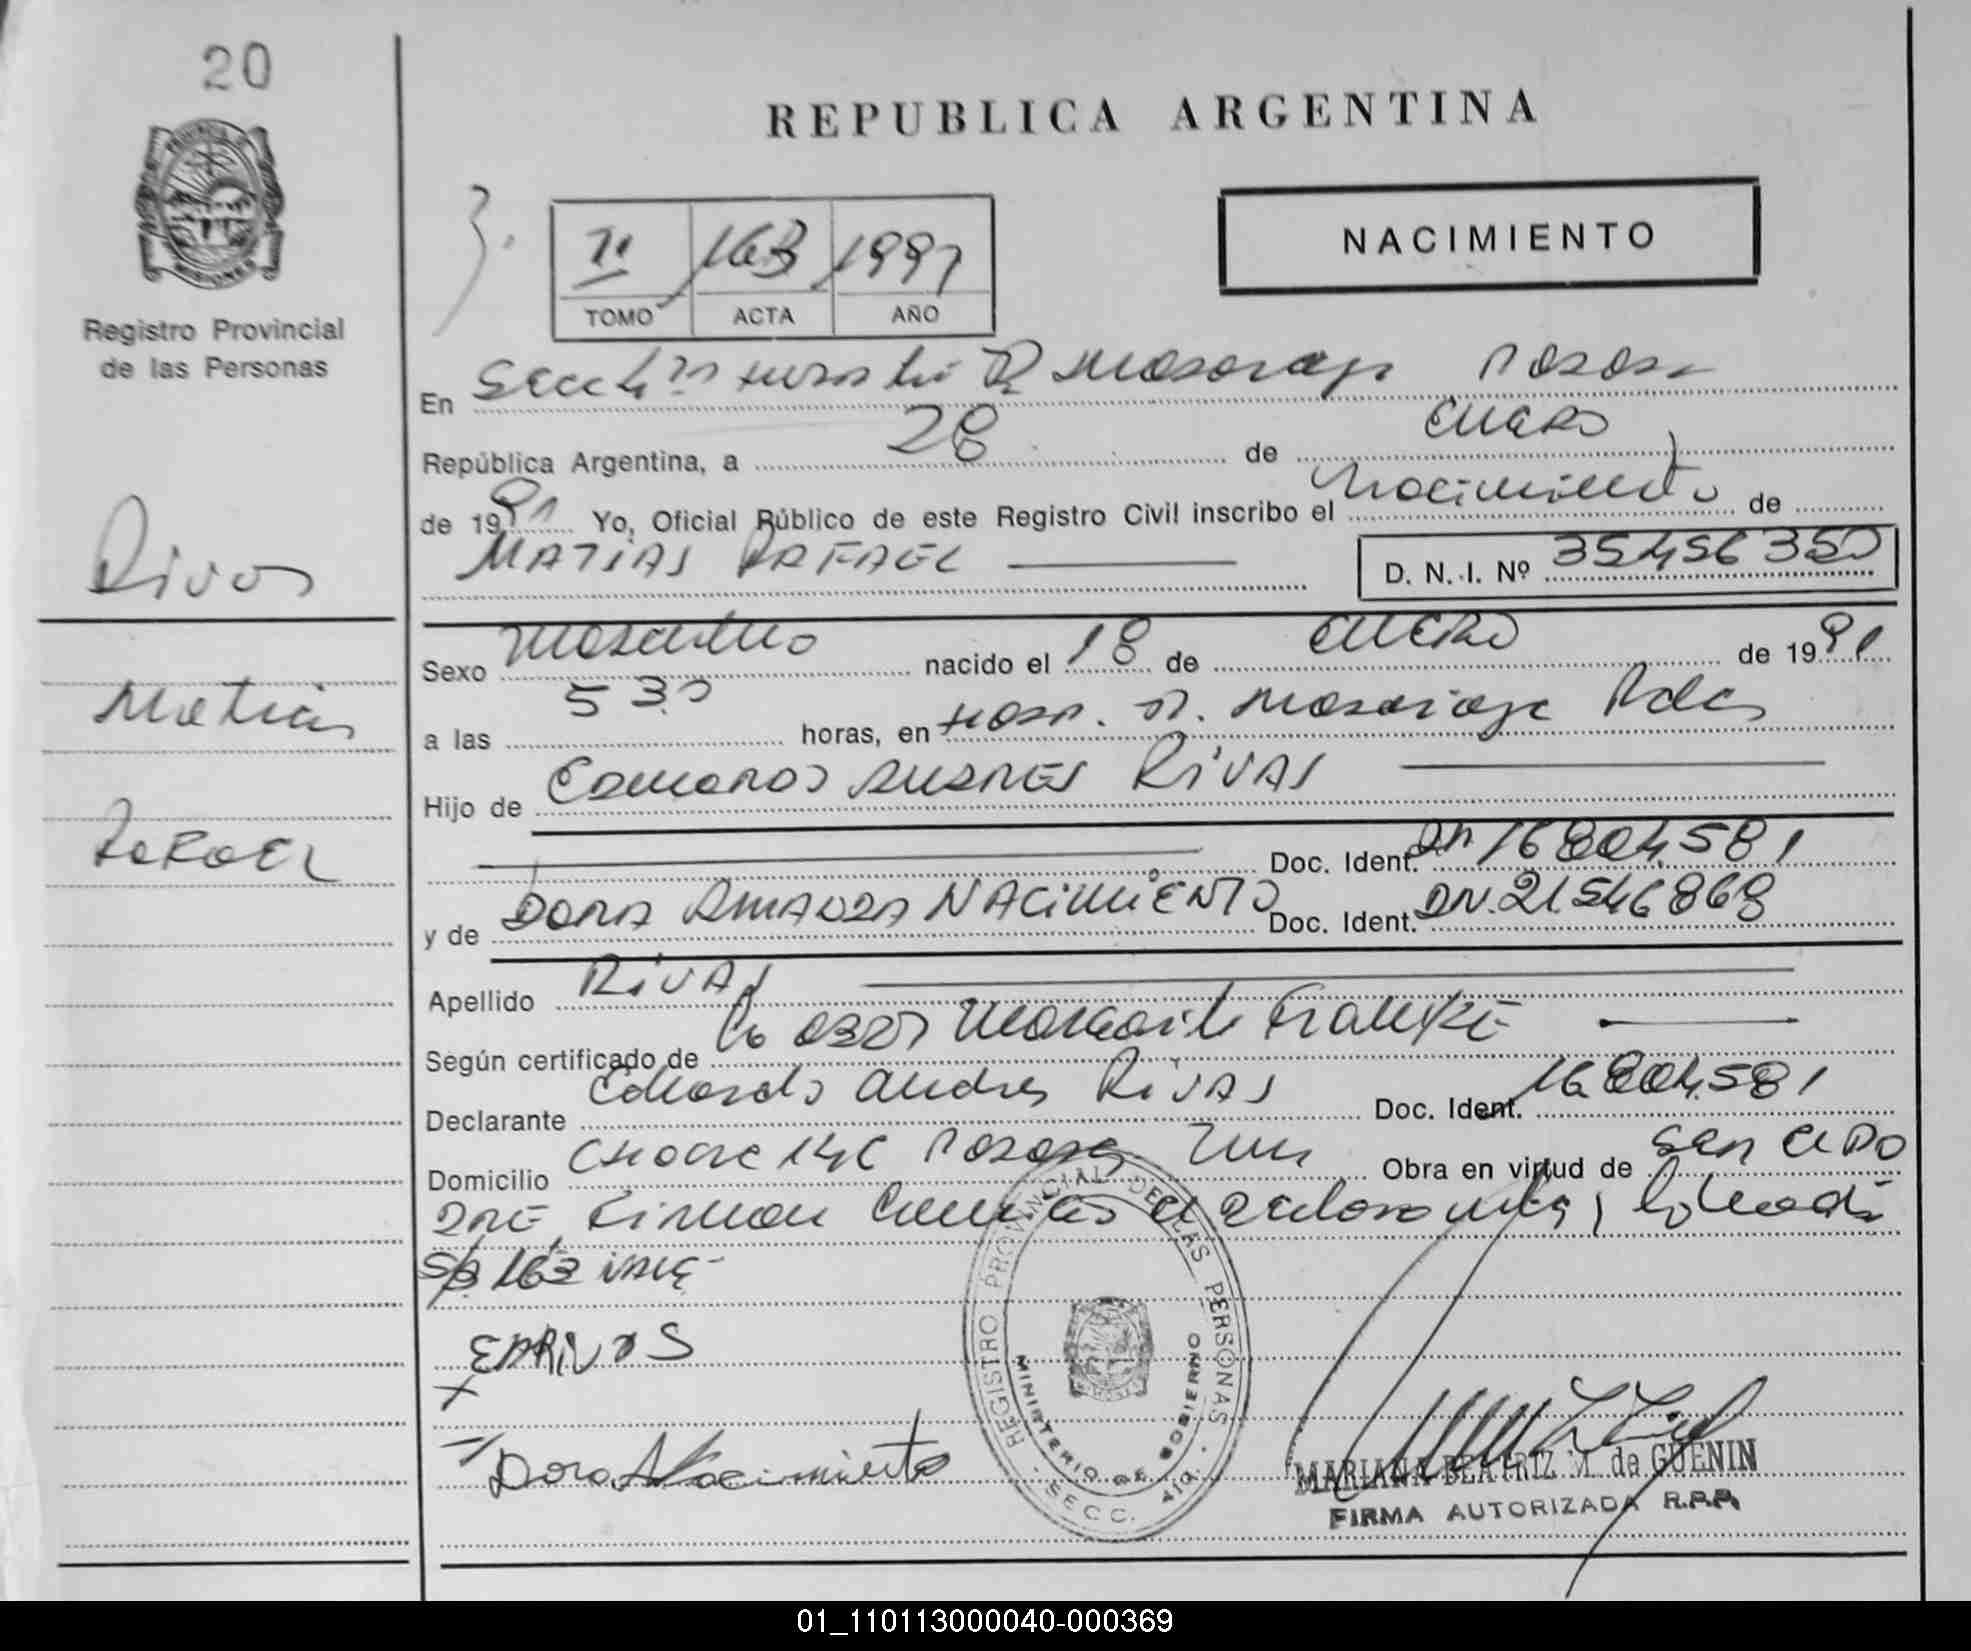 20
REPUBLICA ARGENTINA
NACIMIENTO
II 163 1991
TOMO ACTA AÑO
Registro Provincial
de las Personas
En Secc 4ª
República Argentina, a 28 de ENERO
de 1991 Yo, Oficial Público de este Registro Civil inscribo el Nacimiento de
MATIAS RAFAEL D. N. I. Nº 35456350
Rivas
Matias
Rafael
Sexo Masculino nacido el 18 de ENERO de 1991
a las 530 horas, en Hosp. Dr. Madariaga Pdas
Hijo de EDUARDO ANDRES RIVAS
Doc. Ident. DN 16804.581
y de DORA AMANDA NACIMIENTO Doc. Ident. DN. 21.546868
Apellido RIVAS
Según certificado de
Declarante Eduardo Andres RIVAS Doc. Ident. 16.804.581
Domicilio Posadas Obra en virtud de
Firman
S/B 163 VALE
EARIVAS
Dora A Nacimiento
REGISTRO PROVINCIAL DE LAS PERSONAS
MINISTERIO DE GOBIERNO
SECC. 4ta.
MARIANA BEATRIZ M. de GUENIN
FIRMA AUTORIZADA R.P.P.
01_110113000040-000369